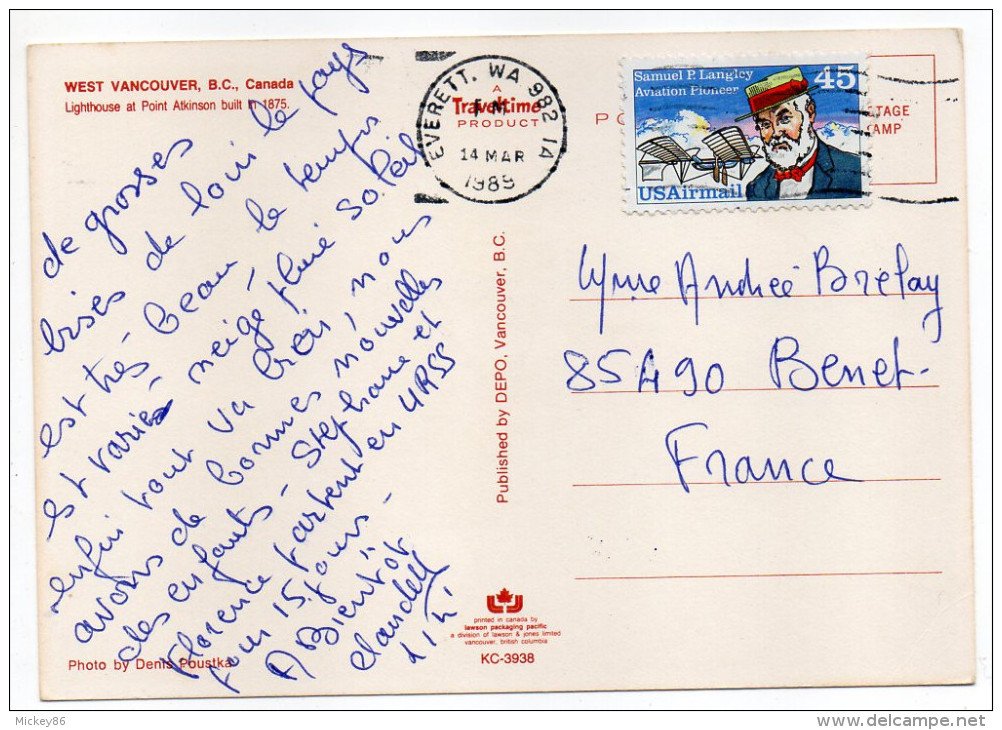 WEST VANCOUVER, B.C., Canada
Lighthouse at Point Atkinson built in 1875.
de grosses
bises de loin le pays
est très beau le temps
est varié, neige, pluie soleil
enfin tout va bien, nous
avons de bonnes nouvelles
des enfants - Stephane et
Florence partent en URSS
pour 15 jours -
A Bientôt
Photo by Denis Poustka
A
Traveltime
PRODUCT
EVERETT, WA 982 1A
PM
14 MAR
1989
Published by DEPO, Vancouver, B.C.
printed in canada by
lawson packaging pacific
a division of lawson & jones limited
vancouver, british columbia
KC-3938
Samuel P. Langley
Aviation Pioneer
45
USAirmail
PO
TAGE
AMP
Mme Andrée Brelay
85490 Benet
France
Mickey86
www.delcampe.net